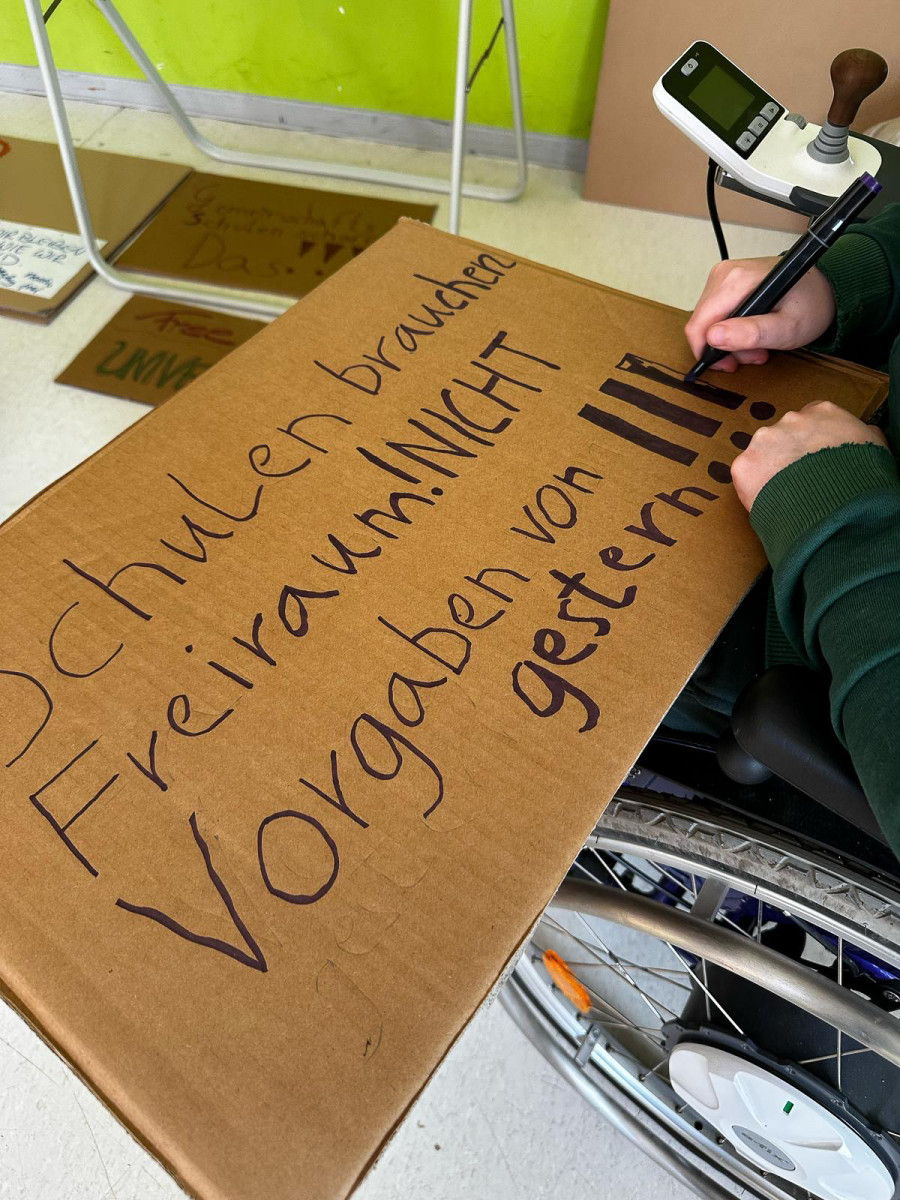 Schulen brauchen
Freiraum! NICHT
Vorgaben von
gestern!!!
Gemeinschafts
schulen
Das!!!
Free
UNIVE